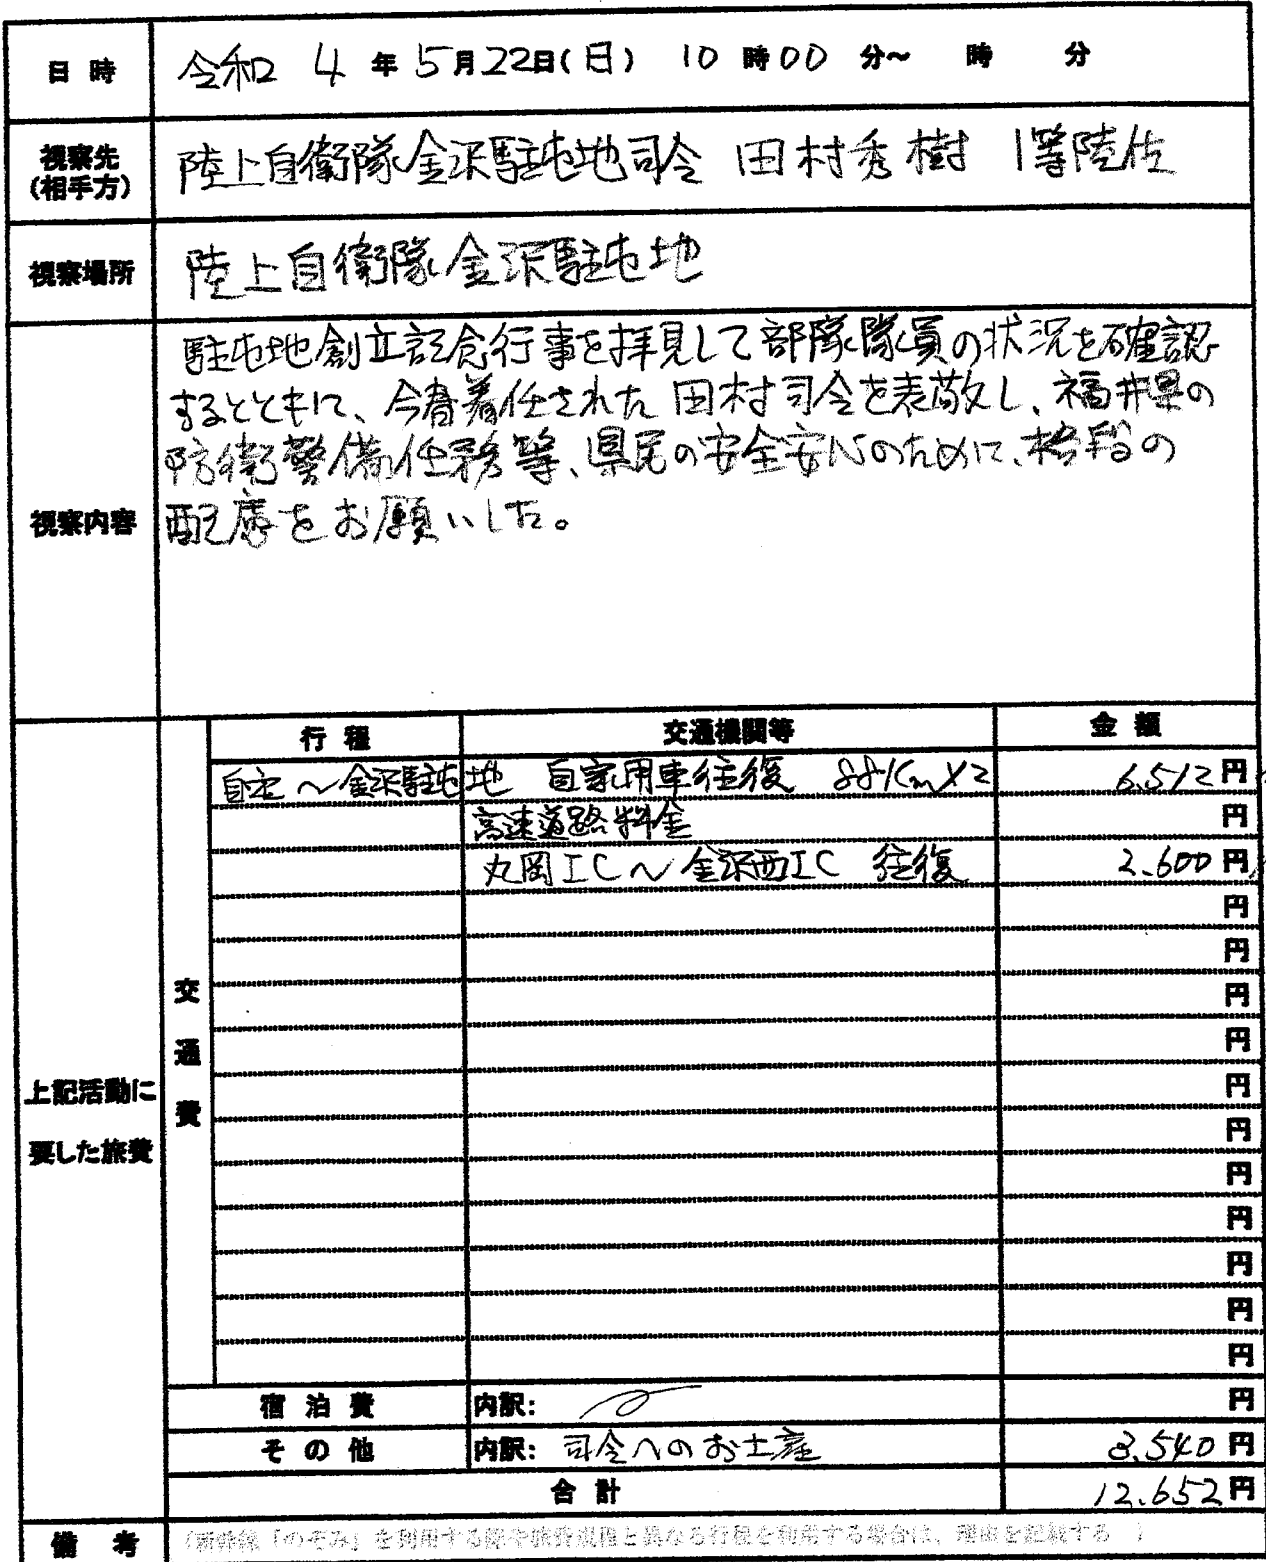 日 時 令和 4 年 5月22日(日) 10 時00 分～ 時 分
視察先
(相手方) 陸上自衛隊金沢駐屯地司令 田村秀樹 1等陸佐
視察場所 陸上自衛隊金沢駐屯地
駐屯地創立記念行事を拝見して部隊隊員の状況を確認
するとともに、今春着任された田村司令を表敬し、福井県の
防衛警備任務等、県民の安全安心のために、格段の
視察内容 配慮をお願いした。
行 程 交通機関等 金 額
自宅～金沢駐屯地 自家用車往復 88Km×2 6.512円
高速道路料金 円
丸岡IC～金沢西IC 往復 2.600円
円
円
円
円
円
円
円
円
円
円
円
交通費
上記活動に
要した旅費
宿 泊 費 内訳: 円
そ の 他 内訳: 司令へのお土産 3.540円
合 計 12.652円
備 考 (新幹線「のぞみ」を利用する際や旅費規程と異なる行程を利用する場合は、理由を記載する )